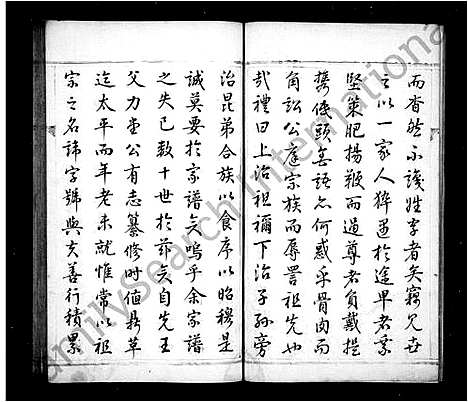 而杳然不識姓字者矣竊見世
之以一家人猝遇於途卑者乘
堅策肥揚鞭而過尊者負戴提
攜低頭無語亦何惑乎骨肉而
角訟公庭宗族而辱詈祖先也
哉禮曰上治祖禰下治子孫旁
治昆弟合族以食序以昭穆是
誠莫要於家譜矣嗚乎余家譜
之失已數十世於茲矣自先王
父力堂公有志纂修時值鼎革
迄太平而年老未就惟常以祖
宗之名諱字號與夫善行積累
FamilySearch International